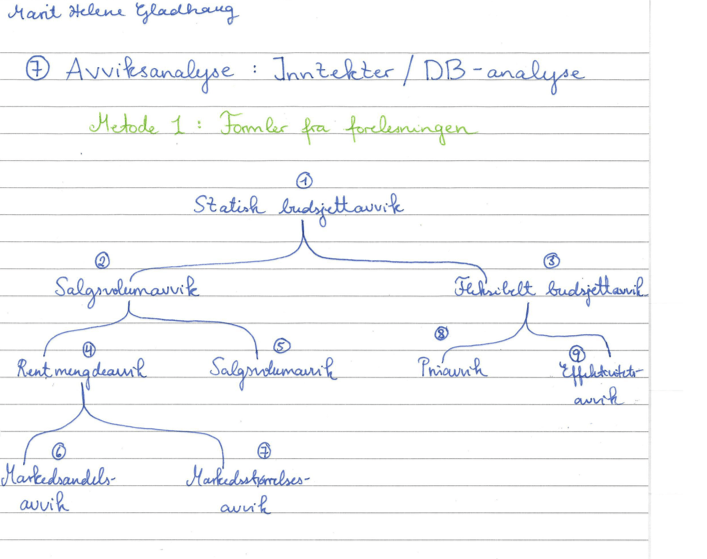 Marit Helene Gladhaug
⑦ Avviksanalyse : Inntekter / DB-analyse
Metode 1 : Formler fra forelesningen
①
Statisk budsjettavvik
② ③
Salgsvolumavvik Fleksibelt budsjettavvik
④ ⑤ ⑧ ⑨
Rent mengdeavvik Salgsvolumavvik Prisavvik Effektivitets-
avvik
⑥ ⑦
Markedsandels- Markedsstørrelses-
avvik avvik